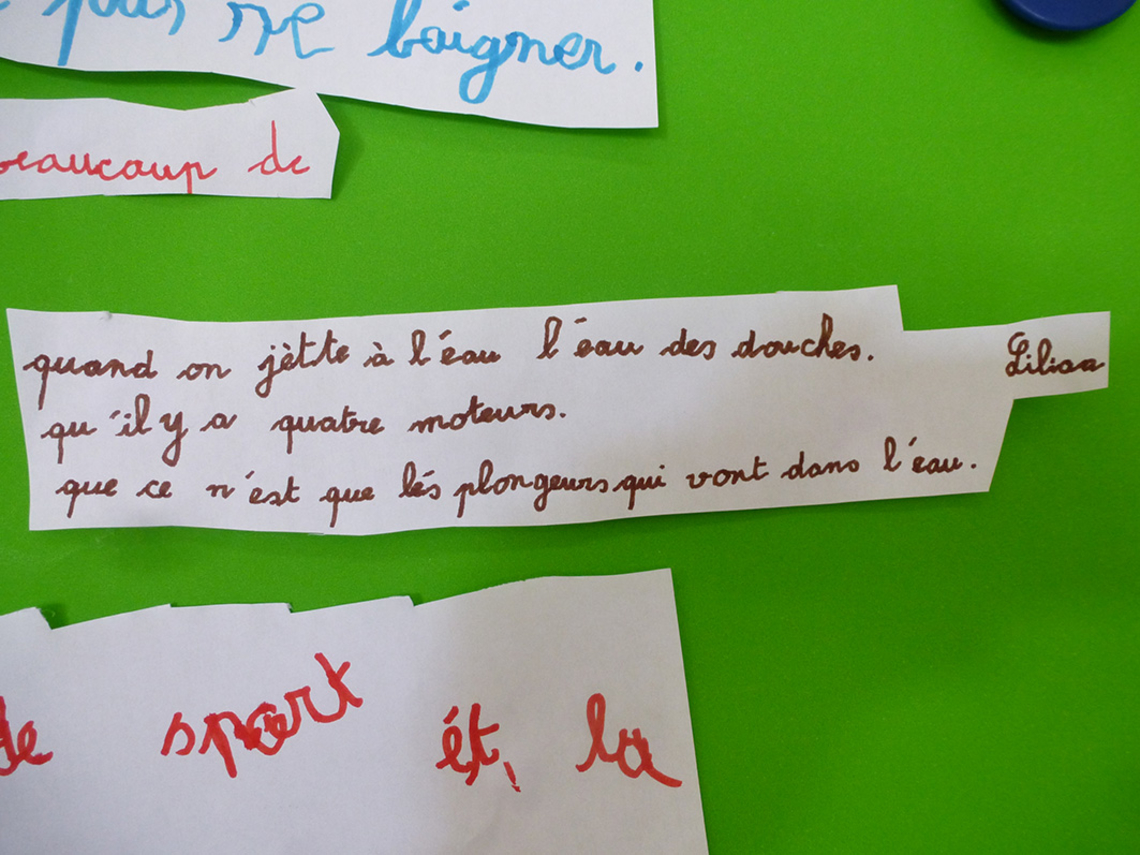 pas se baigner.
beaucoup de
quand on jètte à l'éau l'éau des douches. Lilisa
qu'il y a quatre moteurs.
que ce n'est que lés plongeurs qui vont dans l'éau.
de sport ét, la